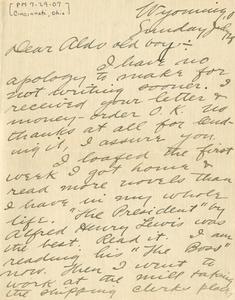 [PM 7-29-07
Cincinnati, Ohio]
Wyoming,
Sunday July
Dear Aldo old boy:-
I have no
apology to make for
not writing sooner. I
received your letter &
money-order O.K. No
thanks at all for lend-
ing it, I assure you.
I loafed the first
week I got home &
read more novels than
I have in my whole
life. "The President" by
Alfred Henry Lewis was
the best. Read it. I am
reading his "The Boss"
now. Then I went to
work at the mill taking
the shipping clerks place